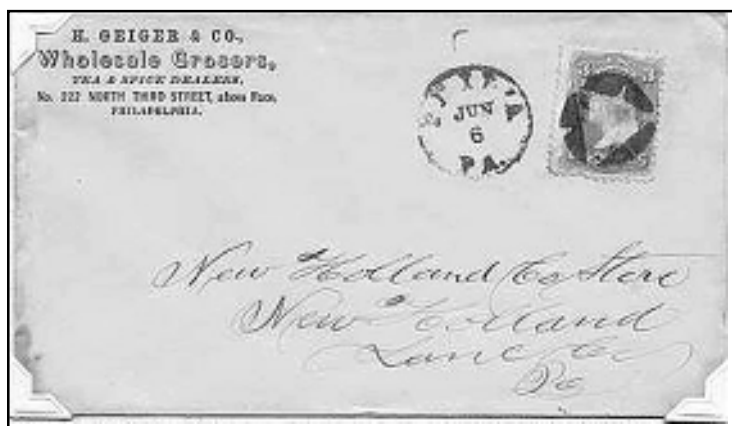 H. GEIGER & CO.,
Wholesale Grocers,
TEA & SPICE DEALERS,
No. 222 NORTH THIRD STREET, above Race,
PHILADELPHIA.
JUN
6
PA.
New Holland Co Store
New Holland
Lanc Co
Pa